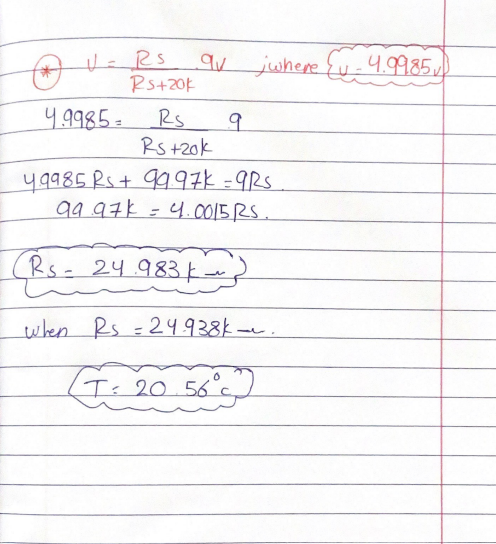 * V = Rs/Rs+20k . 9v ; where {v = 4.9985v}
4.9985 = Rs/Rs+20k 9
4.9985Rs + 99.97k = 9Rs.
99.97k = 4.0015Rs.
Rs = 24.983k
when Rs = 24.938k.
T = 20.56°c